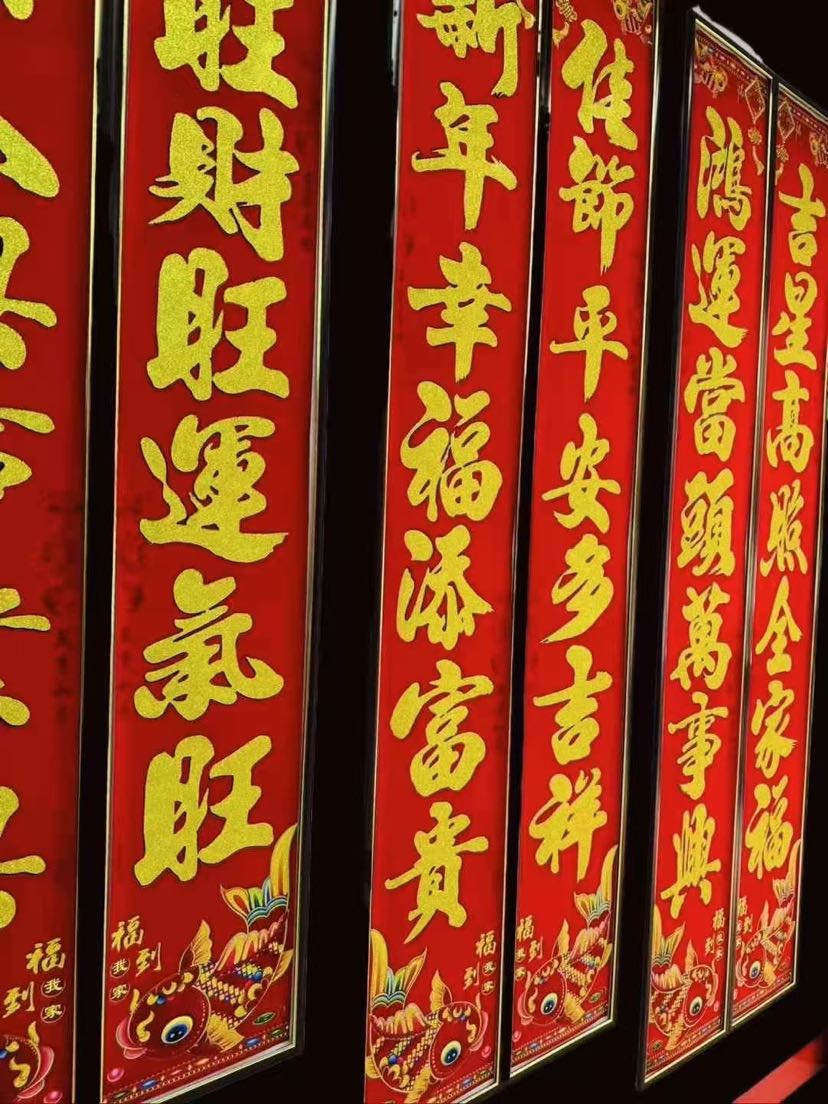 吉星高照全家福
福到我家
鴻運當頭萬事興
福到我家
佳節平安多吉祥
福到我家
新年幸福添富貴
福到我家
旺財旺運氣旺
福到我家
福到我家